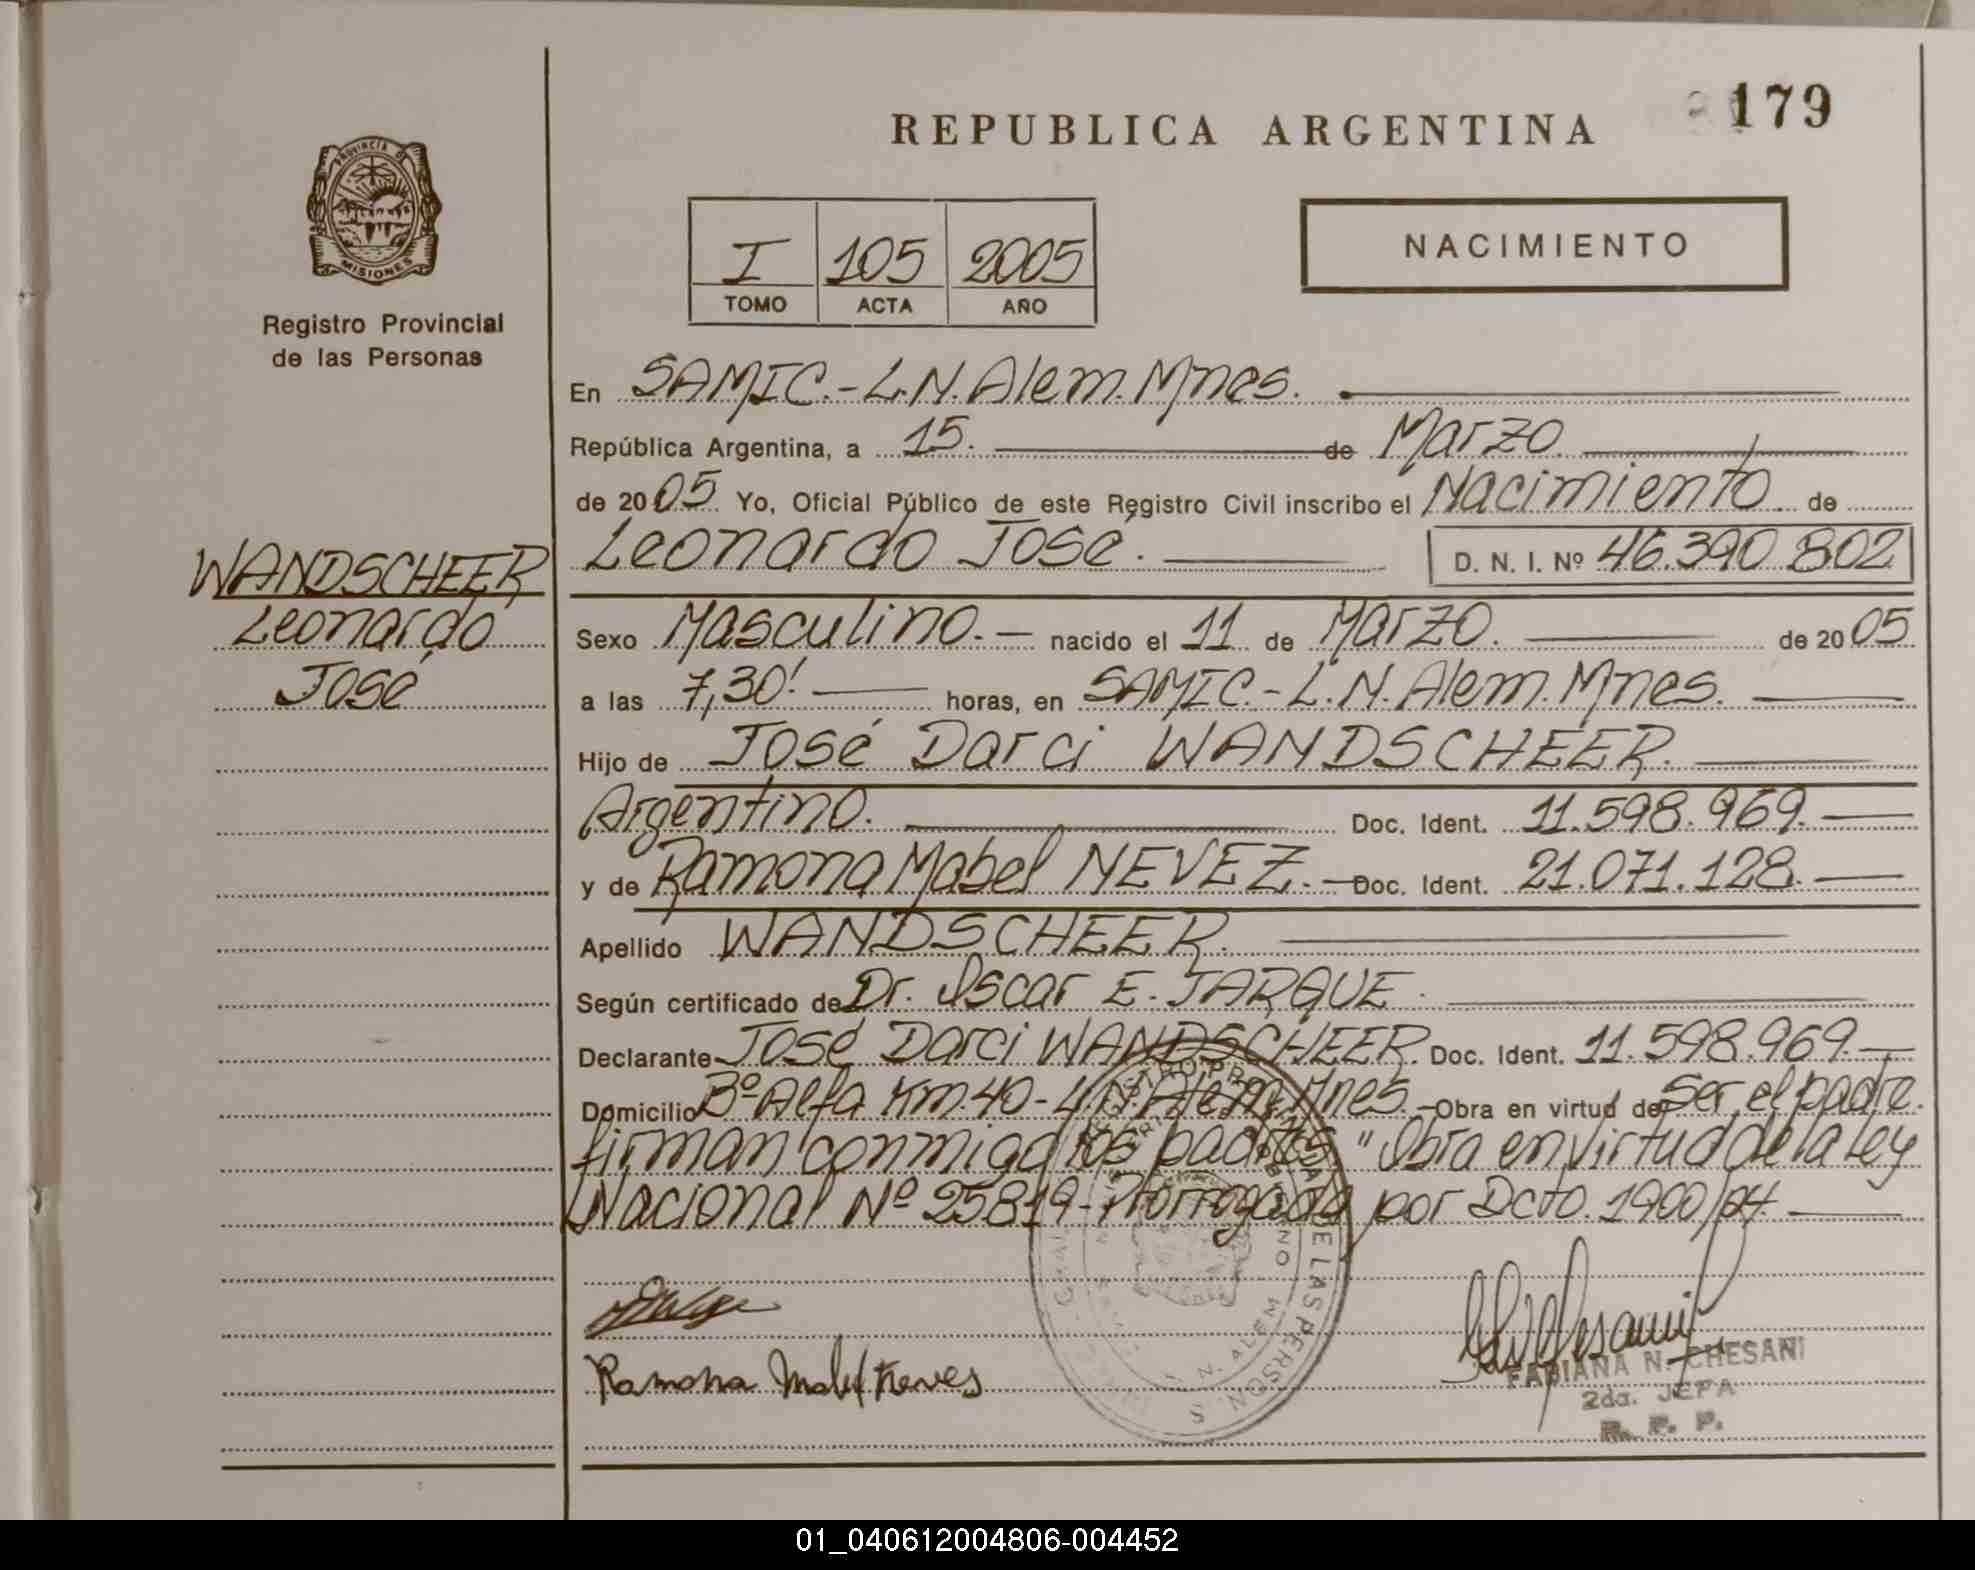 179
REPUBLICA ARGENTINA
PROVINCIA DE
MISIONES
Registro Provincial
de las Personas
I 105 2005
TOMO ACTA AÑO
NACIMIENTO
En SAMIC.-L.N.Alem.Mnes.
República Argentina, a 15. de Marzo.
de 2005 Yo, Oficial Público de este Registro Civil inscribo el Nacimiento de
Leonardo José. D. N. I. Nº 46.390.802
WANDSCHEER
Leonardo
José
Sexo Masculino.- nacido el 11 de Marzo. de 2005
a las 7,30! horas, en SAMIC.-L.N.Alem.Mnes.
Hijo de José Darci WANDSCHEER.
Argentino. Doc. Ident. 11.598.969.
y de Ramona Mabel NEVEZ. Doc. Ident. 21.071.128.
Apellido WANDSCHEER.
Según certificado de Dr. Oscar E. JARQUE.
Declarante José Darci WANDSCHEER. Doc. Ident. 11.598.969.
Domicilio Bº Alfa Km.40-L.N.Alem.Mnes. Obra en virtud de Ser el padre.
firman conmigo los padres " Obra en virtud de la ley
Nacional Nº 25819-Prorrogada por Dcto. 1900/04
Ramona Mabel Neves
DE LAS PERSONAS
N. ALEM
FABIANA N. CHESANI
2da. JEFA
R. P. P.
01_040612004806-004452